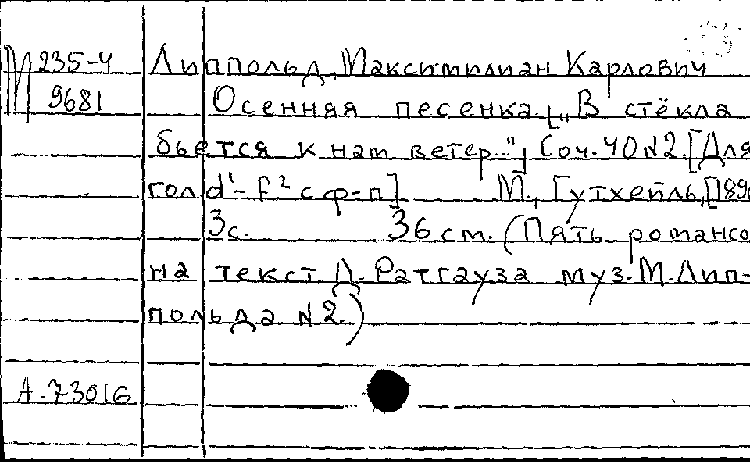 М 235-4 Липпольд, Максимилиан Карлович
9681 Осенняя песенка. [„В стёкла
бьется к нам ветер..."] Соч. 40 №2. [Для
гол d'-f² с ф-п] М., Гутхейль, [189
3с. 36 см. (Пять романсо
на текст Д. Ратгауза муз. М. Лип-
польда №2.)
А-73016